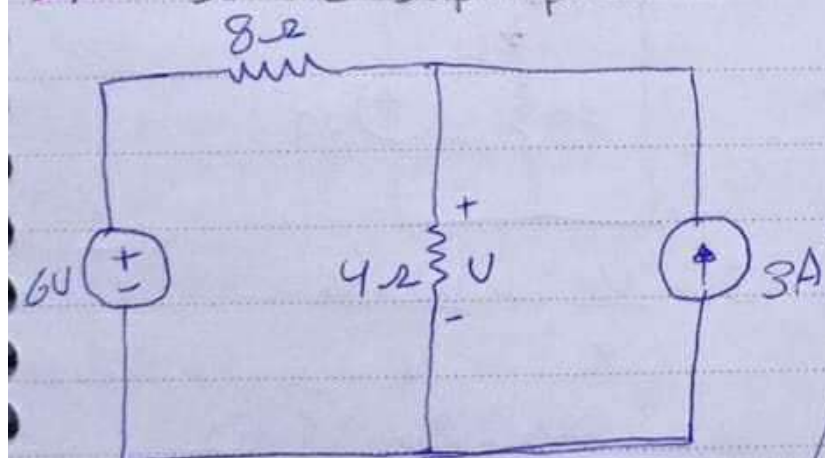 8Ω
+
-
6V
4Ω
+
V
-
3A